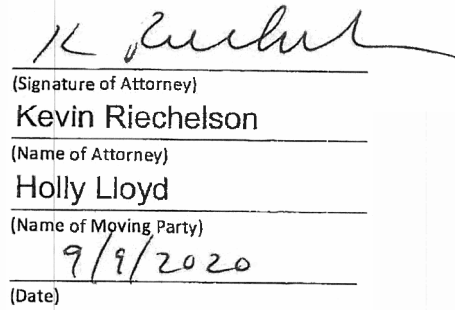 K Riechel
(Signature of Attorney)
Kevin Riechelson
(Name of Attorney)
Holly Lloyd
(Name of Moving Party)
9/9/2020
(Date)